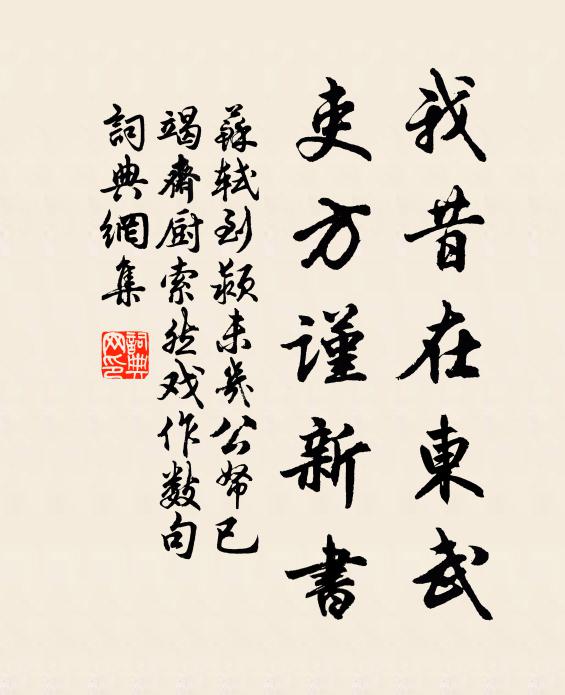 我昔在東武
吏方謹新書
蘇軾到潁未幾公帑已
竭齋厨索然戏作數句
詞典網集
詞典
网印